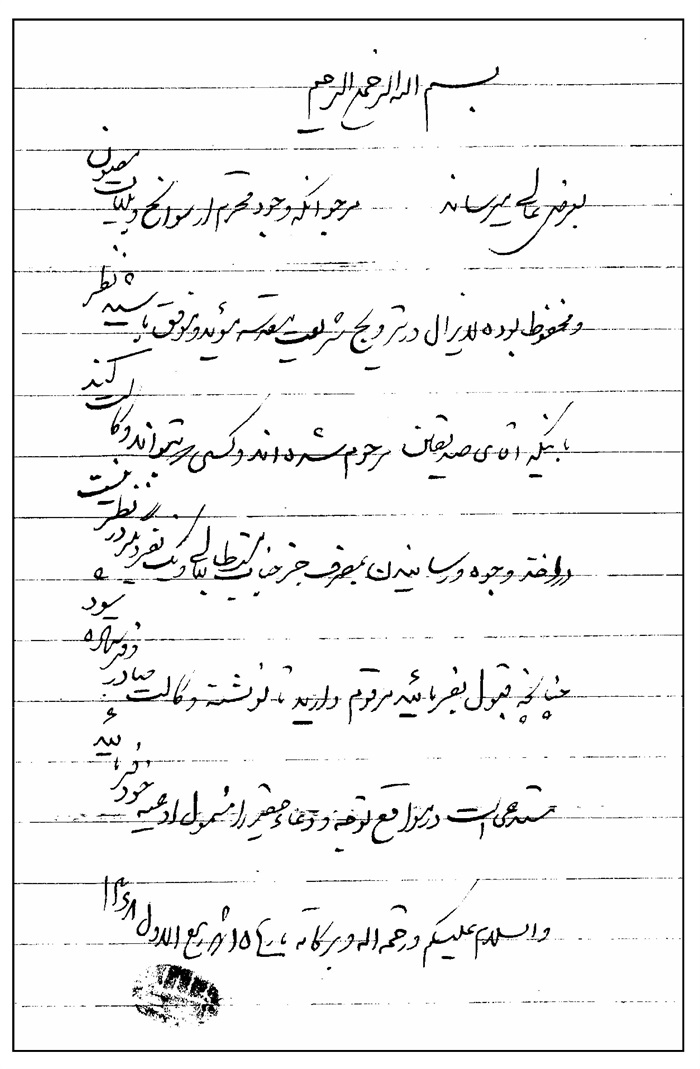 بسم الله الرحمن الرحیم
بعرض عالی میرساند مرجو آنکه وجود محترم از سوانح و بلیات مصون
و محفوظ بوده لایزال در ترویج شریعت مقدسه مؤید و موفق باشید نظر
باینکه آقای صدیقین مرحوم شده‌اند و کسی نتواند وکالت کند
در اخذ وجوه و رسانیدن بمصرف جز جنابمستطابعالی و یک نفر دیگر در نظر نیست
چنانچه قبول بفرمائید مرقوم دارید تا نوشته وکالت صادر و فرستاده شود
مستدعی است در مواقع توجه و دعاء حقیر را مشمول ادعیه خود فرمائید
والسلام علیکم ورحمة اله وبرکاته بتاریخ ۱۵ شهر ربیع الاول ۱۳۶۸